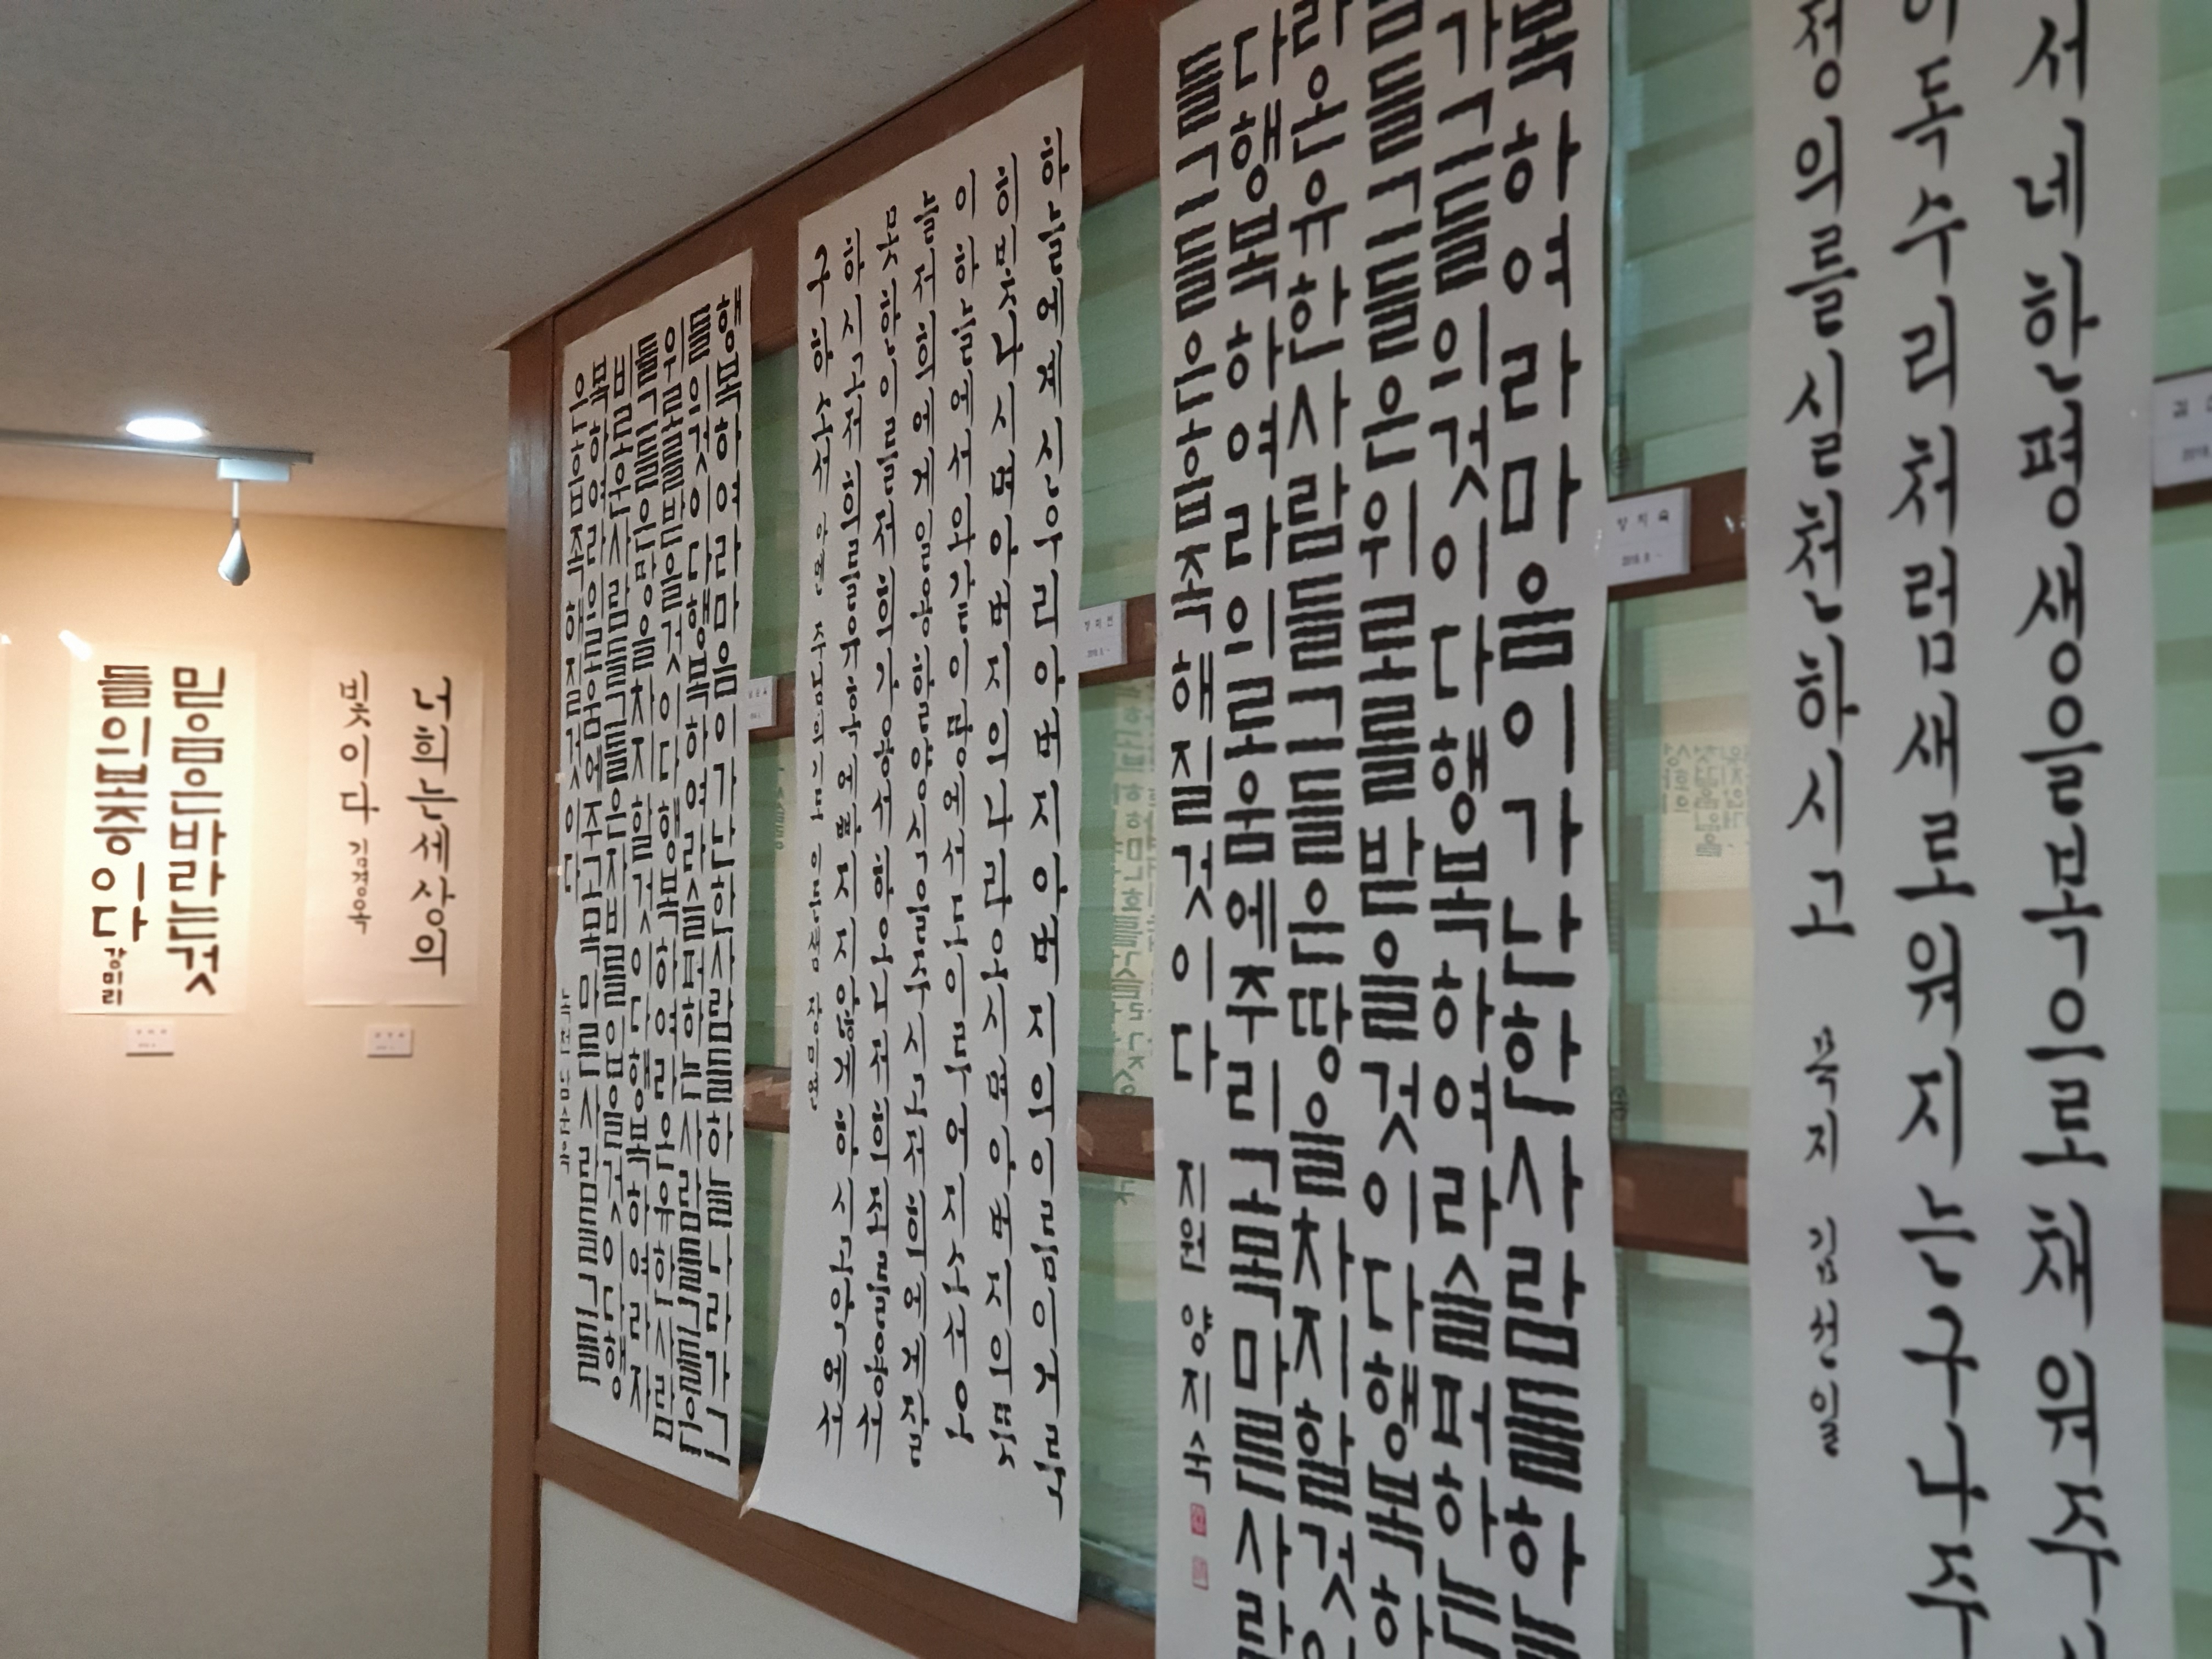 믿음은바라는것
들의보증이다
강미리
너희는세상의
빛이다 김경옥
행복하여라마음이가난한사람들하늘나라가그
들의것이다행복하여라슬퍼하는사람들그들은
위로를받을것이다행복하여라온유한사람
들그들은땅을차지할것이다행복하여라자
비로운사람들그들은자비를입을것이다행
복하여라의로움에주리고목마른사람들그들
은흡족해질것이다 남순옥
하늘에계신우리아버지아버지의이름이거룩
히빛나시며아버지의나라오시며아버지의뜻
이하늘에서와같이땅에서도이루어지소서오
늘저희에게일용할양식을주시고저희에게잘
못한이를저희가용서하오니저희죄를용서
하시고저희를유혹에빠지지않게하시고악에서
구하소서 아멘 주님의기도
복하여라마음이가난한사람들하늘
가그들의것이다행복하여라슬퍼하는
람들그들은위로를받을것이다행복하
라온유한사람들그들은땅을차지할것이
다행복하여라의로움에주리고목마른사람
들그들은흡족해질것이다 지원 양지숙
양지숙
서네한평생을복으로채워주시
이독수리처럼새로워지는구나주
정의를실천하시고